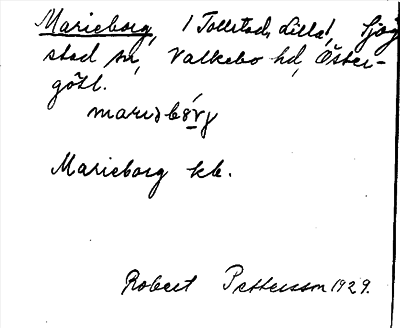 Marieborg, 1 Tollstad, Lilla!, Sjög
stad sn, Valkebo hd, Öster-
götl.
Marieborg kb.
Robert Pettersson 1929.